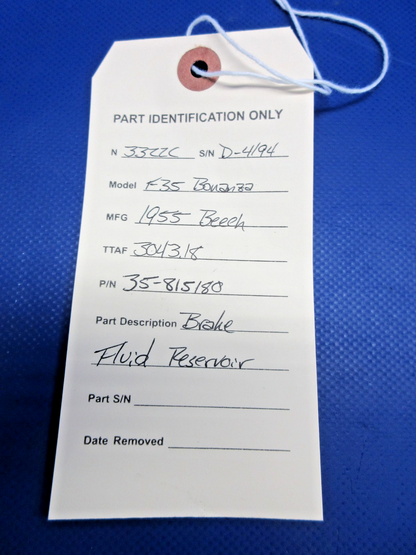 PART IDENTIFICATION ONLY
N 3322C S/N D-4194
Model F35 Bonanza
MFG 1955 Beech
TTAF 3043.18
P/N 35-815180
Part Description Brake
Fluid Reservoir
Part S/N
Date Removed